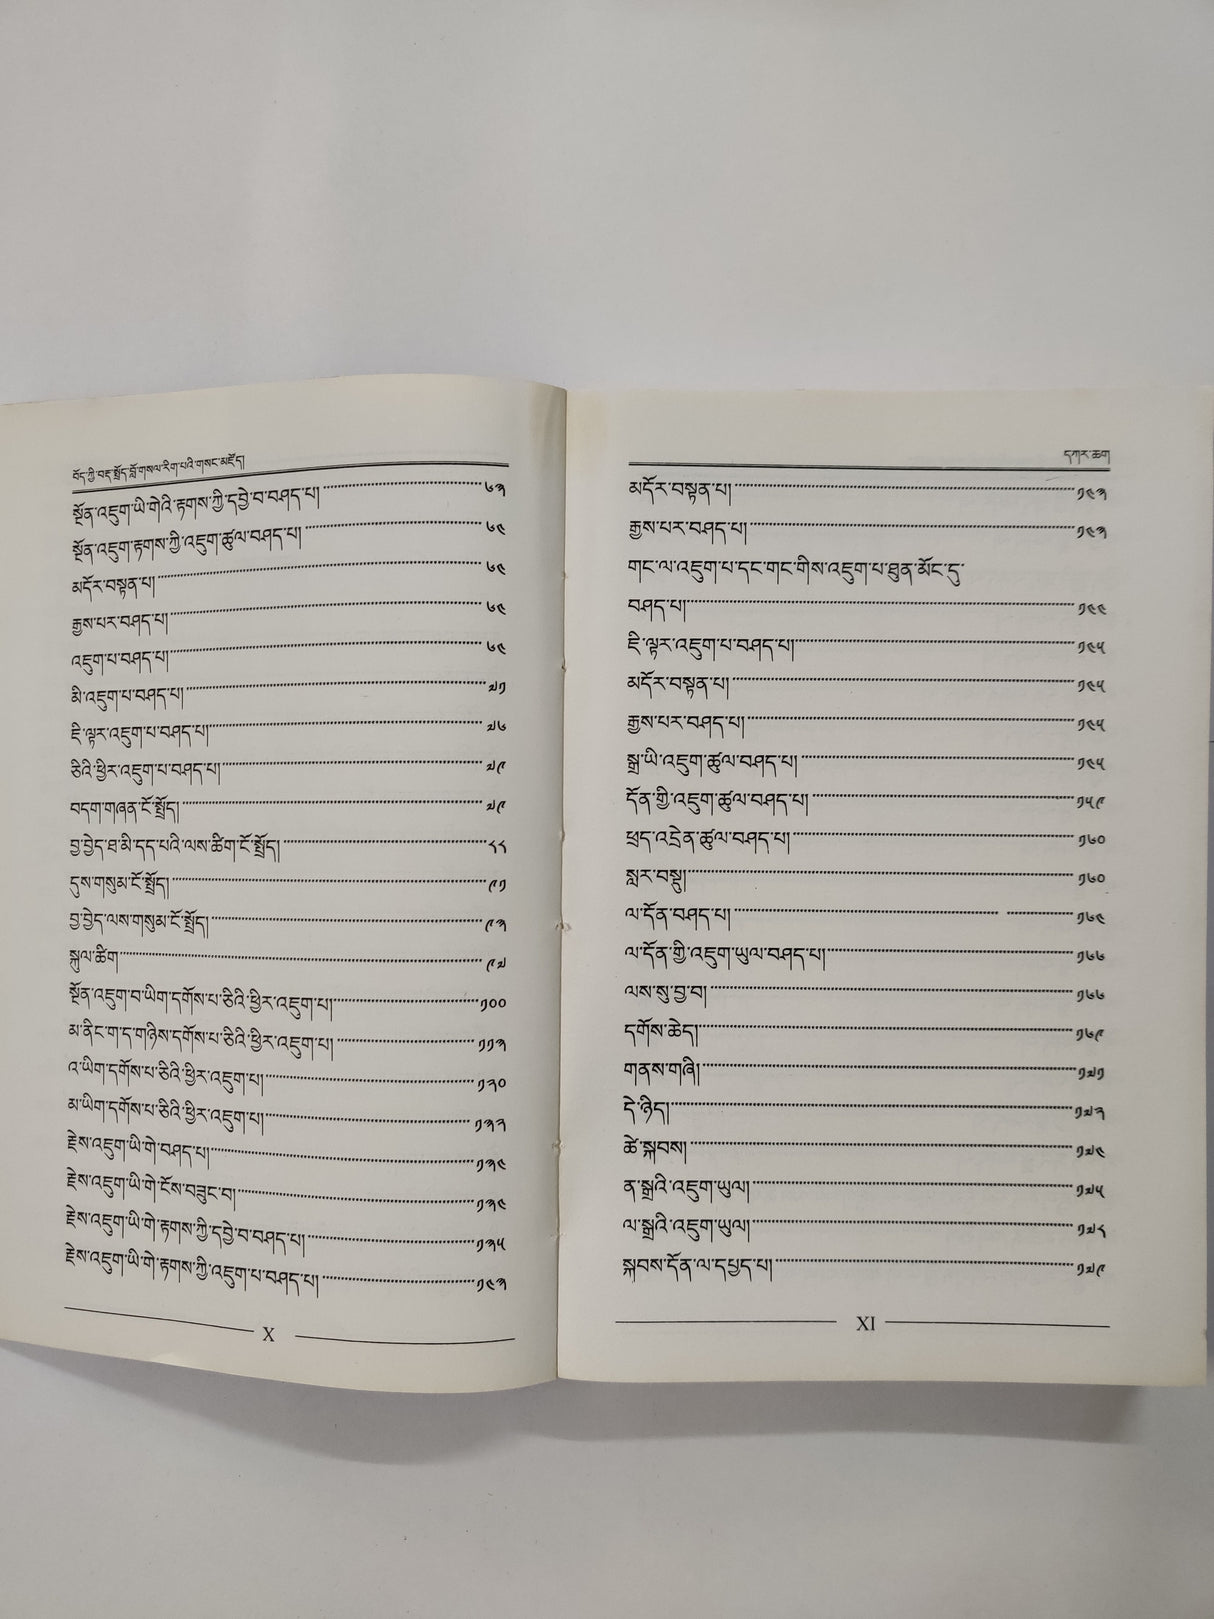 བོད་ཀྱི་བརྡ་སྤྲོད་བློ་གསལ་རིག་པའི་གསང་མཛོད།
སྔོན་འཇུག་ཡི་གེའི་རྟགས་ཀྱི་དབྱེ་བ་བཤད་པ། ༦༣
སྔོན་འཇུག་རྟགས་ཀྱི་འཇུག་ཚུལ་བཤད་པ། ༦༤
མདོར་བསྟན་པ། ༦༤
རྒྱས་པར་བཤད་པ། ༦༤
འཇུག་པ་བཤད་པ། ༦༤
མི་འཇུག་པ་བཤད་པ། ༧༡
ཇི་ལྟར་འཇུག་པ་བཤད་པ། ༧༦
ཅིའི་ཕྱིར་འཇུག་པ་བཤད་པ། ༧༩
བདག་གཞན་ངོ་སྤྲོད། ༧༩
བྱ་བྱེད་ཐ་མི་དད་པའི་ལས་ཚིག་ངོ་སྤྲོད། ༨༨
དུས་གསུམ་ངོ་སྤྲོད། ༩༡
བྱ་བྱེད་ལས་གསུམ་ངོ་སྤྲོད། ༩༣
སྐུལ་ཚིག ༩༧
སྔོན་འཇུག་བ་ཡིག་དགོས་པ་ཅིའི་ཕྱིར་འཇུག་པ། ༡༠༠
མ་ནིང་ག་ད་གཉིས་དགོས་པ་ཅིའི་ཕྱིར་འཇུག་པ། ༡༡༣
འ་ཡིག་དགོས་པ་ཅིའི་ཕྱིར་འཇུག་པ། ༡༢༠
མ་ཡིག་དགོས་པ་ཅིའི་ཕྱིར་འཇུག་པ། ༡༢༢
རྗེས་འཇུག་ཡི་གེ་བཤད་པ། ༡༣༤
རྗེས་འཇུག་ཡི་གེ་ངོས་བཟུང་བ། ༡༣༤
རྗེས་འཇུག་ཡི་གེ་རྟགས་ཀྱི་དབྱེ་བ་བཤད་པ། ༡༣༥
རྗེས་འཇུག་ཡི་གེ་རྟགས་ཀྱི་འཇུག་པ་བཤད་པ། ༡༤༣
X
དཀར་ཆག
མདོར་བསྟན་པ། ༡༤༣
རྒྱས་པར་བཤད་པ། ༡༤༣
གང་ལ་འཇུག་པ་དང་གང་གིས་འཇུག་པ་ཐུན་མོང་དུ་
བཤད་པ། ༡༤༤
ཇི་ལྟར་འཇུག་པ་བཤད་པ། ༡༤༥
མདོར་བསྟན་པ། ༡༤༥
རྒྱས་པར་བཤད་པ། ༡༤༥
སྒྲ་ཡི་འཇུག་ཚུལ་བཤད་པ། ༡༤༥
དོན་གྱི་འཇུག་ཚུལ་བཤད་པ། ༡༥༩
ཕྲད་འདྲེན་ཚུལ་བཤད་པ། ༡༦༠
སླར་བསྡུ། ༡༦༠
ལ་དོན་བཤད་པ། ༡༦༤
ལ་དོན་གྱི་འཇུག་ཡུལ་བཤད་པ། ༡༦༦
ལས་སུ་བྱ་བ། ༡༦༦
དགོས་ཆེད། ༡༦༩
གནས་གཞི། ༡༧༡
དེ་ཉིད། ༡༧༢
ཚེ་སྐབས། ༡༧༤
ན་སྒྲའི་འཇུག་ཡུལ། ༡༧༥
ལ་སྒྲའི་འཇུག་ཡུལ། ༡༧༨
སྐབས་དོན་ལ་དཔྱད་པ། ༡༧༩
XI